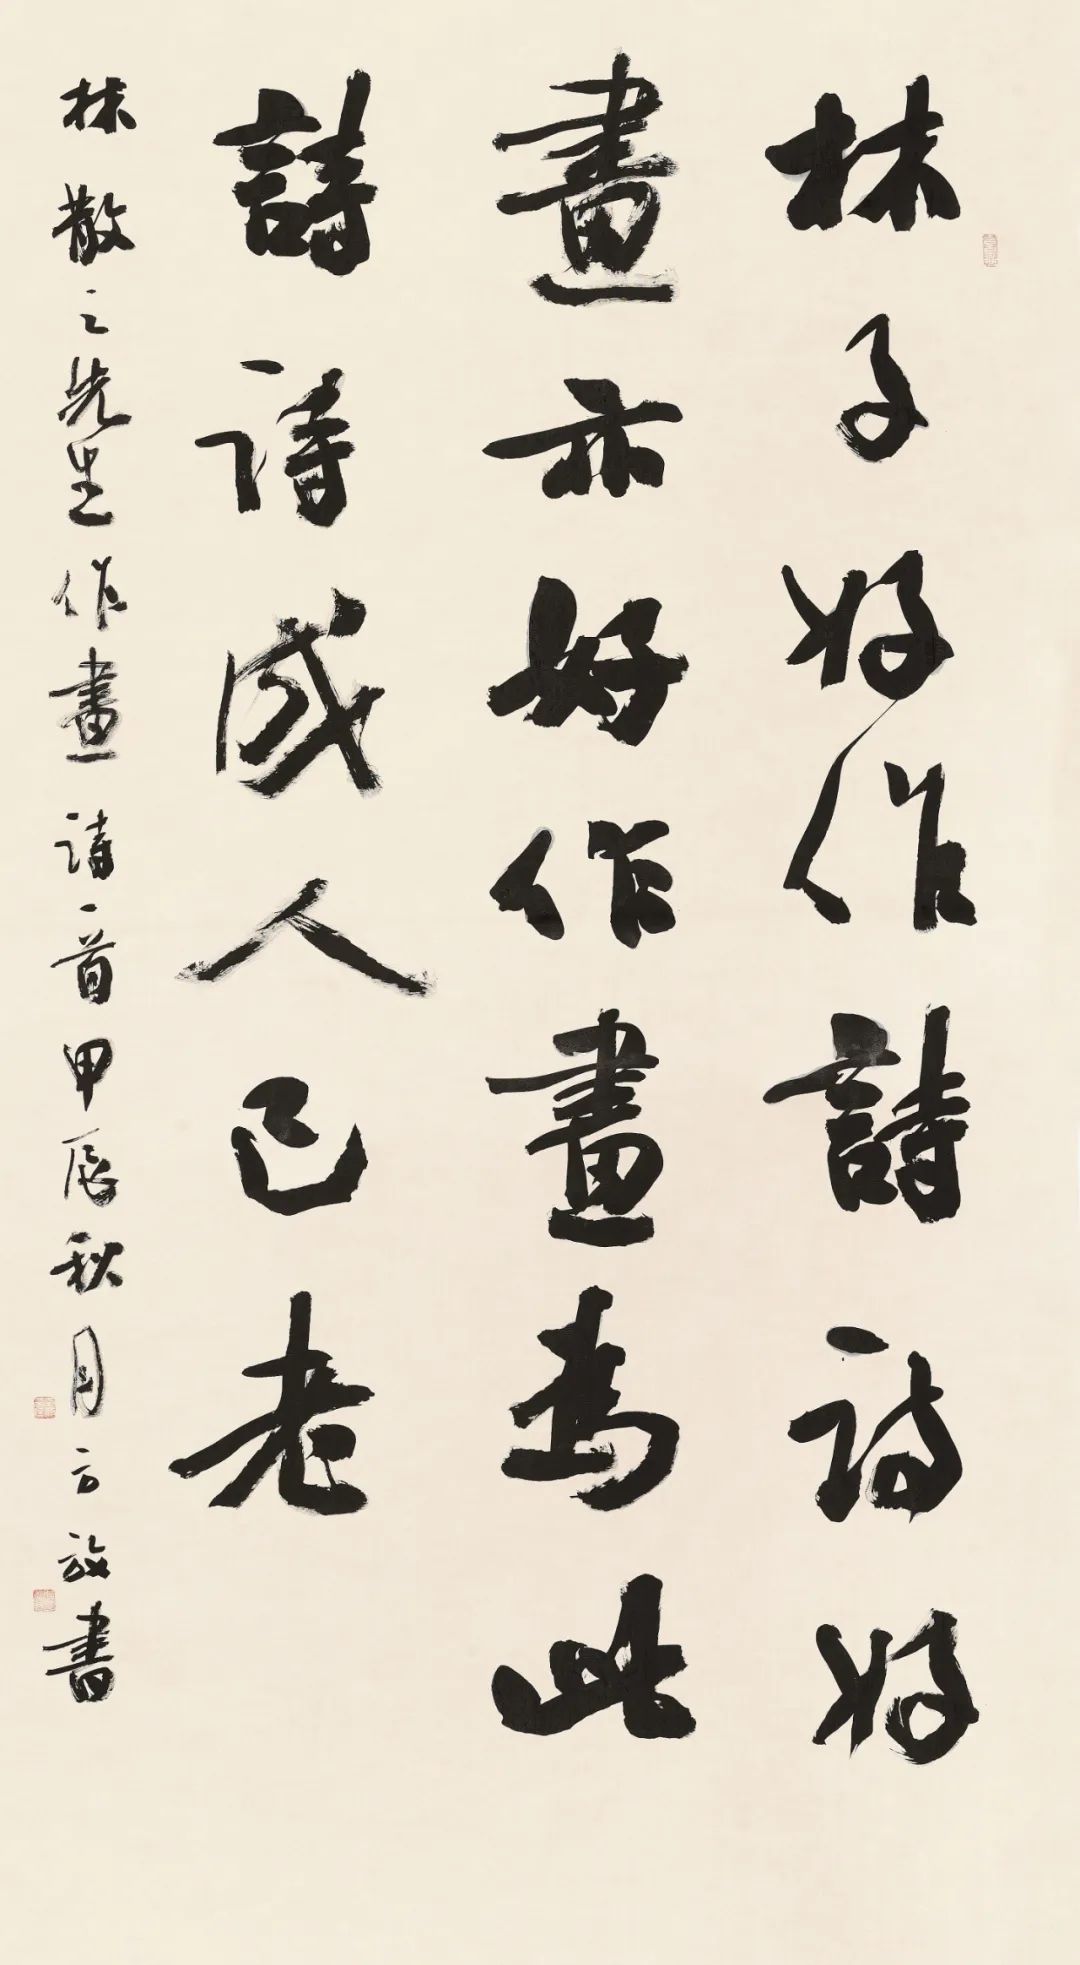 林子好作詩詩好
畫亦好作畫為此
詩詩成人已老
林散之先生作畫詩一首甲辰秋月方放書